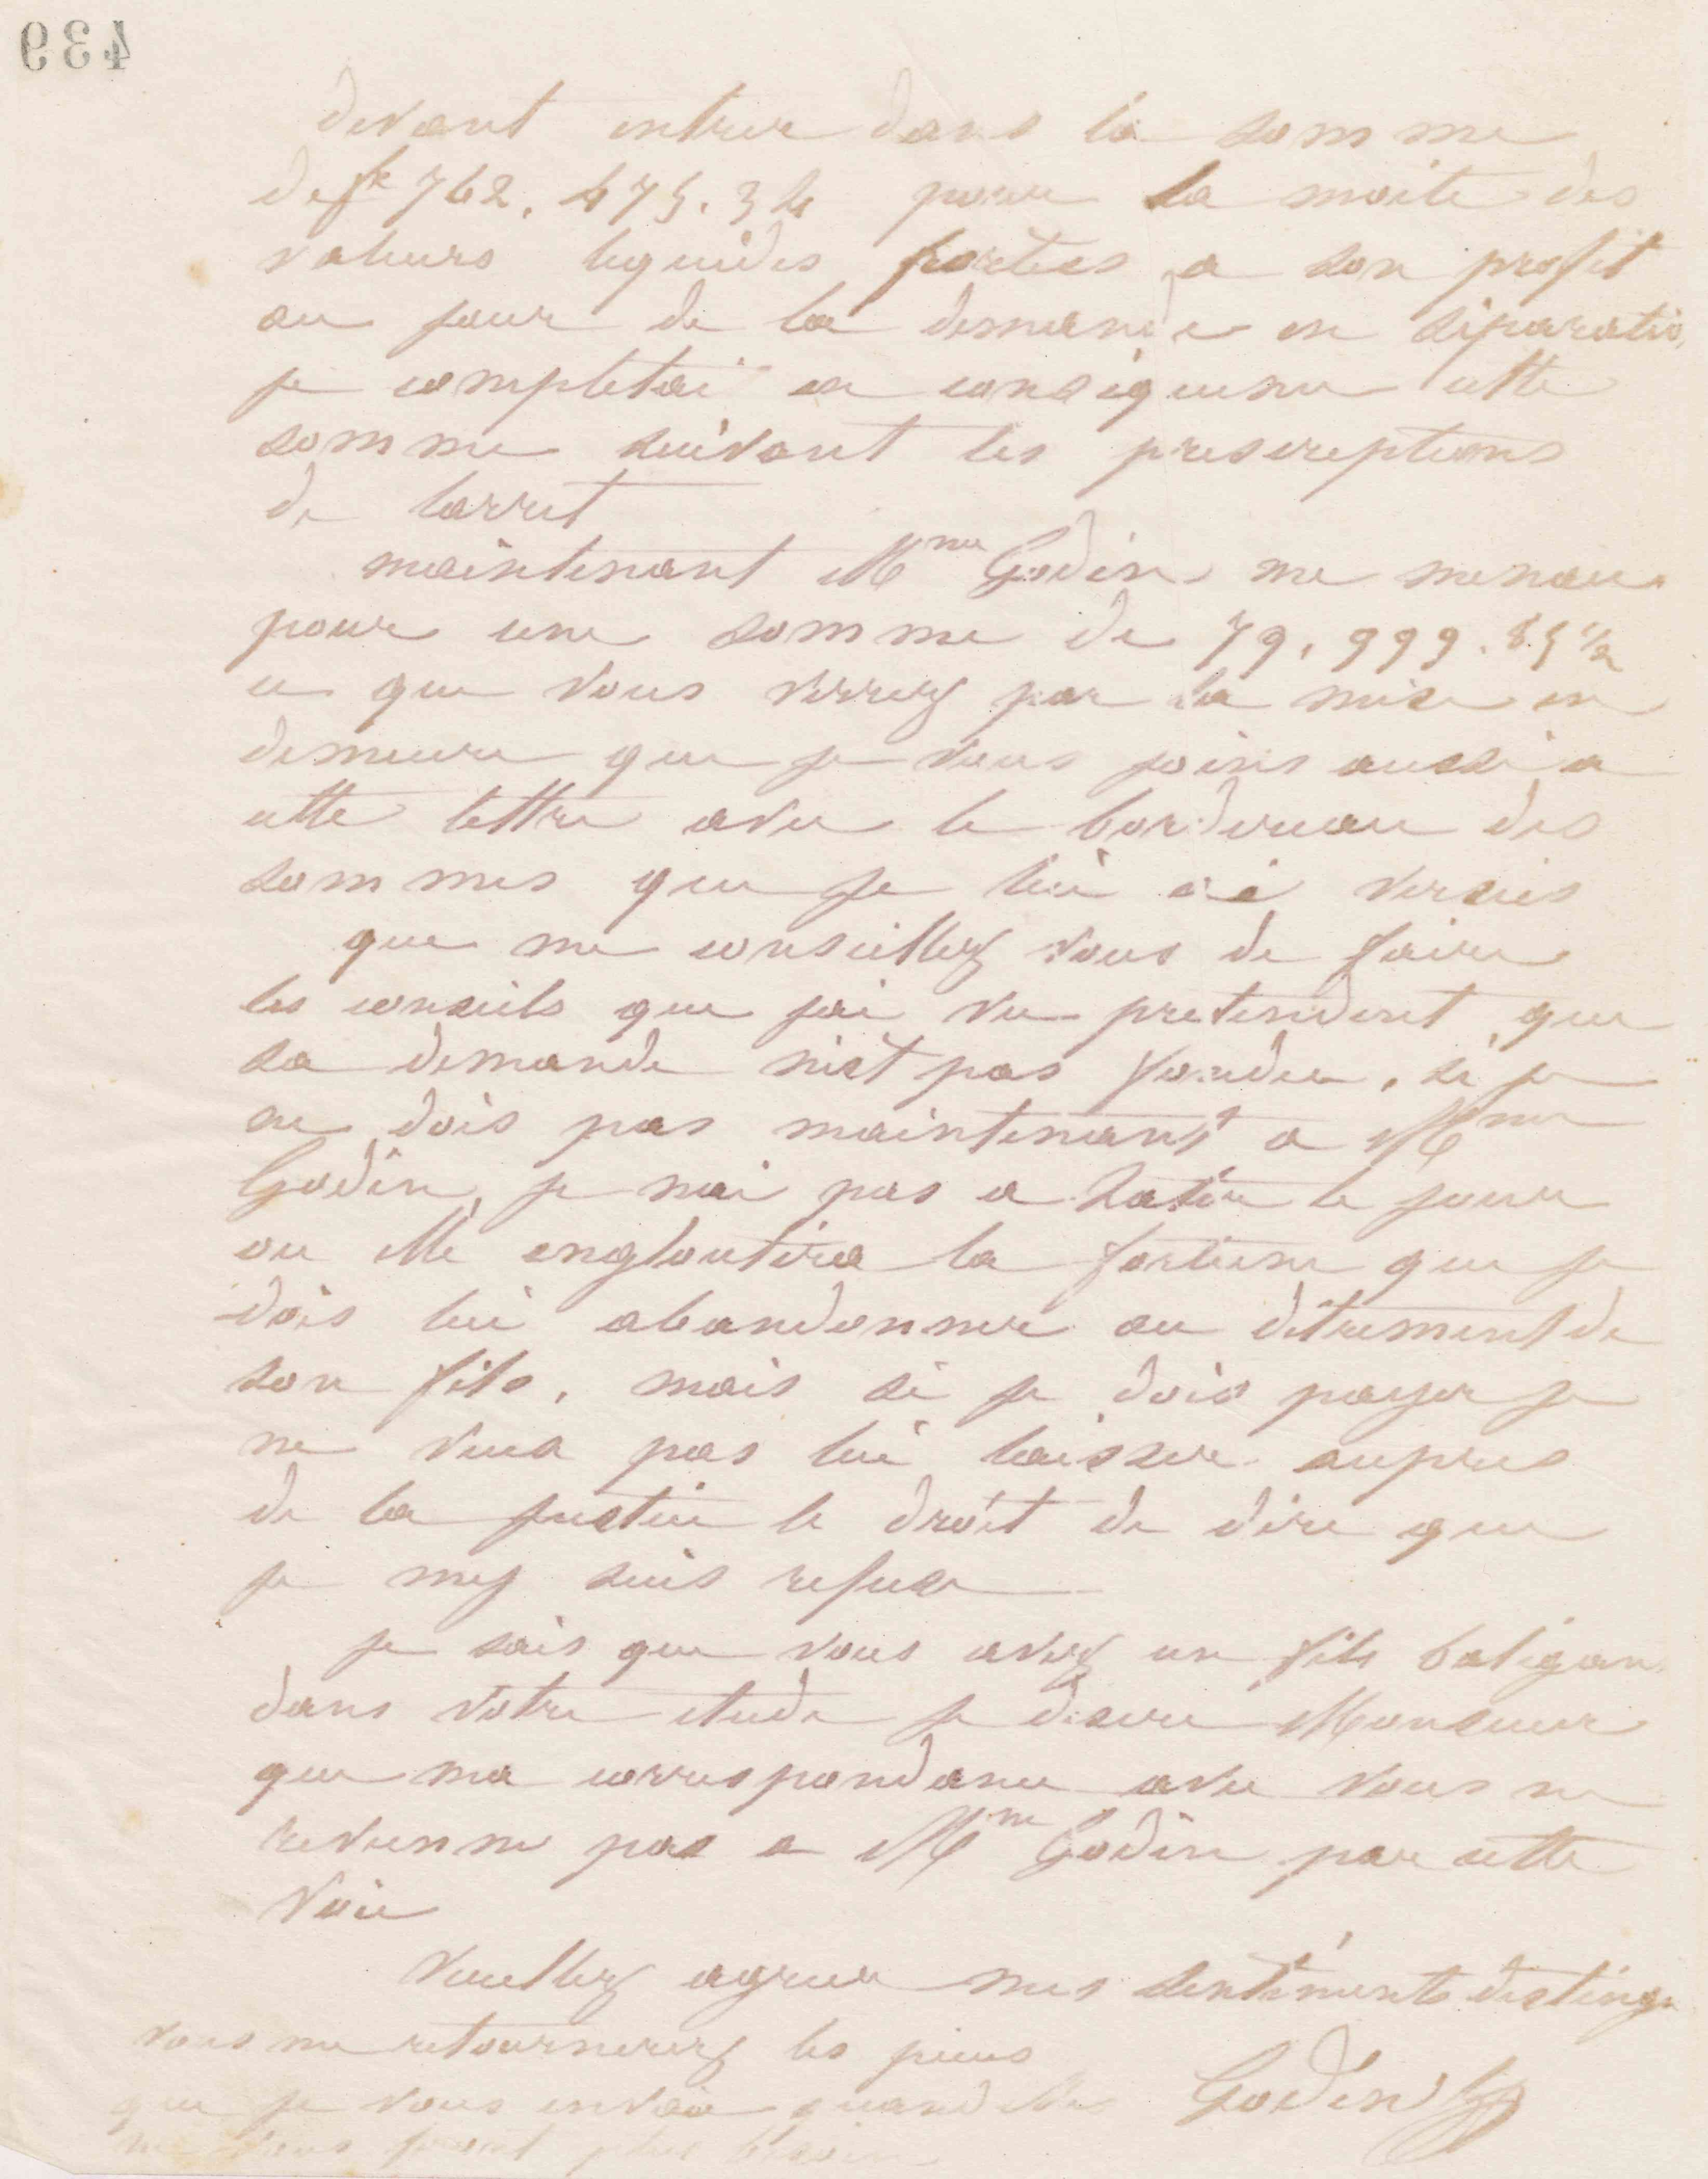 439
devant entrer dans la somme
de fr 762.475.34 pour la moite des
valeurs liquides portées a son profit
au jour de la demande en séparatio
je completai en conséquence cette
somme suivant les prescriptions
de larret
maintenant Mme Godin me menace
pour une somme de 79.999.85 1/2
ce que vous verrez par la mise en
demeure que je vous joins aussi a
cette lettre avec le bordereau des
sommes que je lui ai versées
que me conseillez vous de faire
les conseils que jai vu pretendent que
sa demande nest pas fondée, si je
ne dois pas maintenant a Mme
Godin, je nai pas a hater le jour
ou elle engloutira la fortune que je
dois lui abandonner au détriment de
son fils, mais si je dois payer je
ne veux pas lui laisser aupres
de la justice le droit de dire que
je my suis refusé
je sais que vous avez un fils
dans votre étude je désire Monsieur
que ma correspondance avec vous ne
revienne pas a Mme Godin par cette
voie
Veuillez agréer mes sentiments disting
vous me retournerez les pieces
que je vous envoie quand elles
ne vous feront plus besoin
Godin